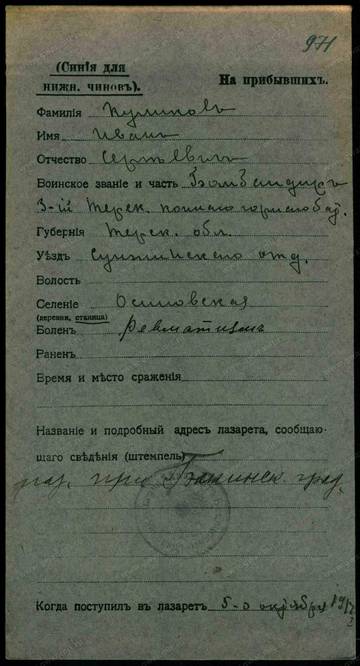 971
(Синія для
нижн. чиновъ).
На прибывшихъ.
Фамилія Куликовъ
Имя Иванъ
Отчество Сергѣевичъ
Воинское званіе и часть Бомбандиръ
3-ій Терск.
Губернія Терск. обл.
Уѣздъ Сунженскаго отд.
Волость
Селеніе Осиповская
(деревня, станица)
Боленъ Ревматизмъ
Раненъ
Время и мѣсто сраженія
Названіе и подробный адресъ лазарета, сообщаю-
щаго свѣдѣнія (штемпель)
лаз. при
Когда поступилъ въ лазаретъ 5-го октября